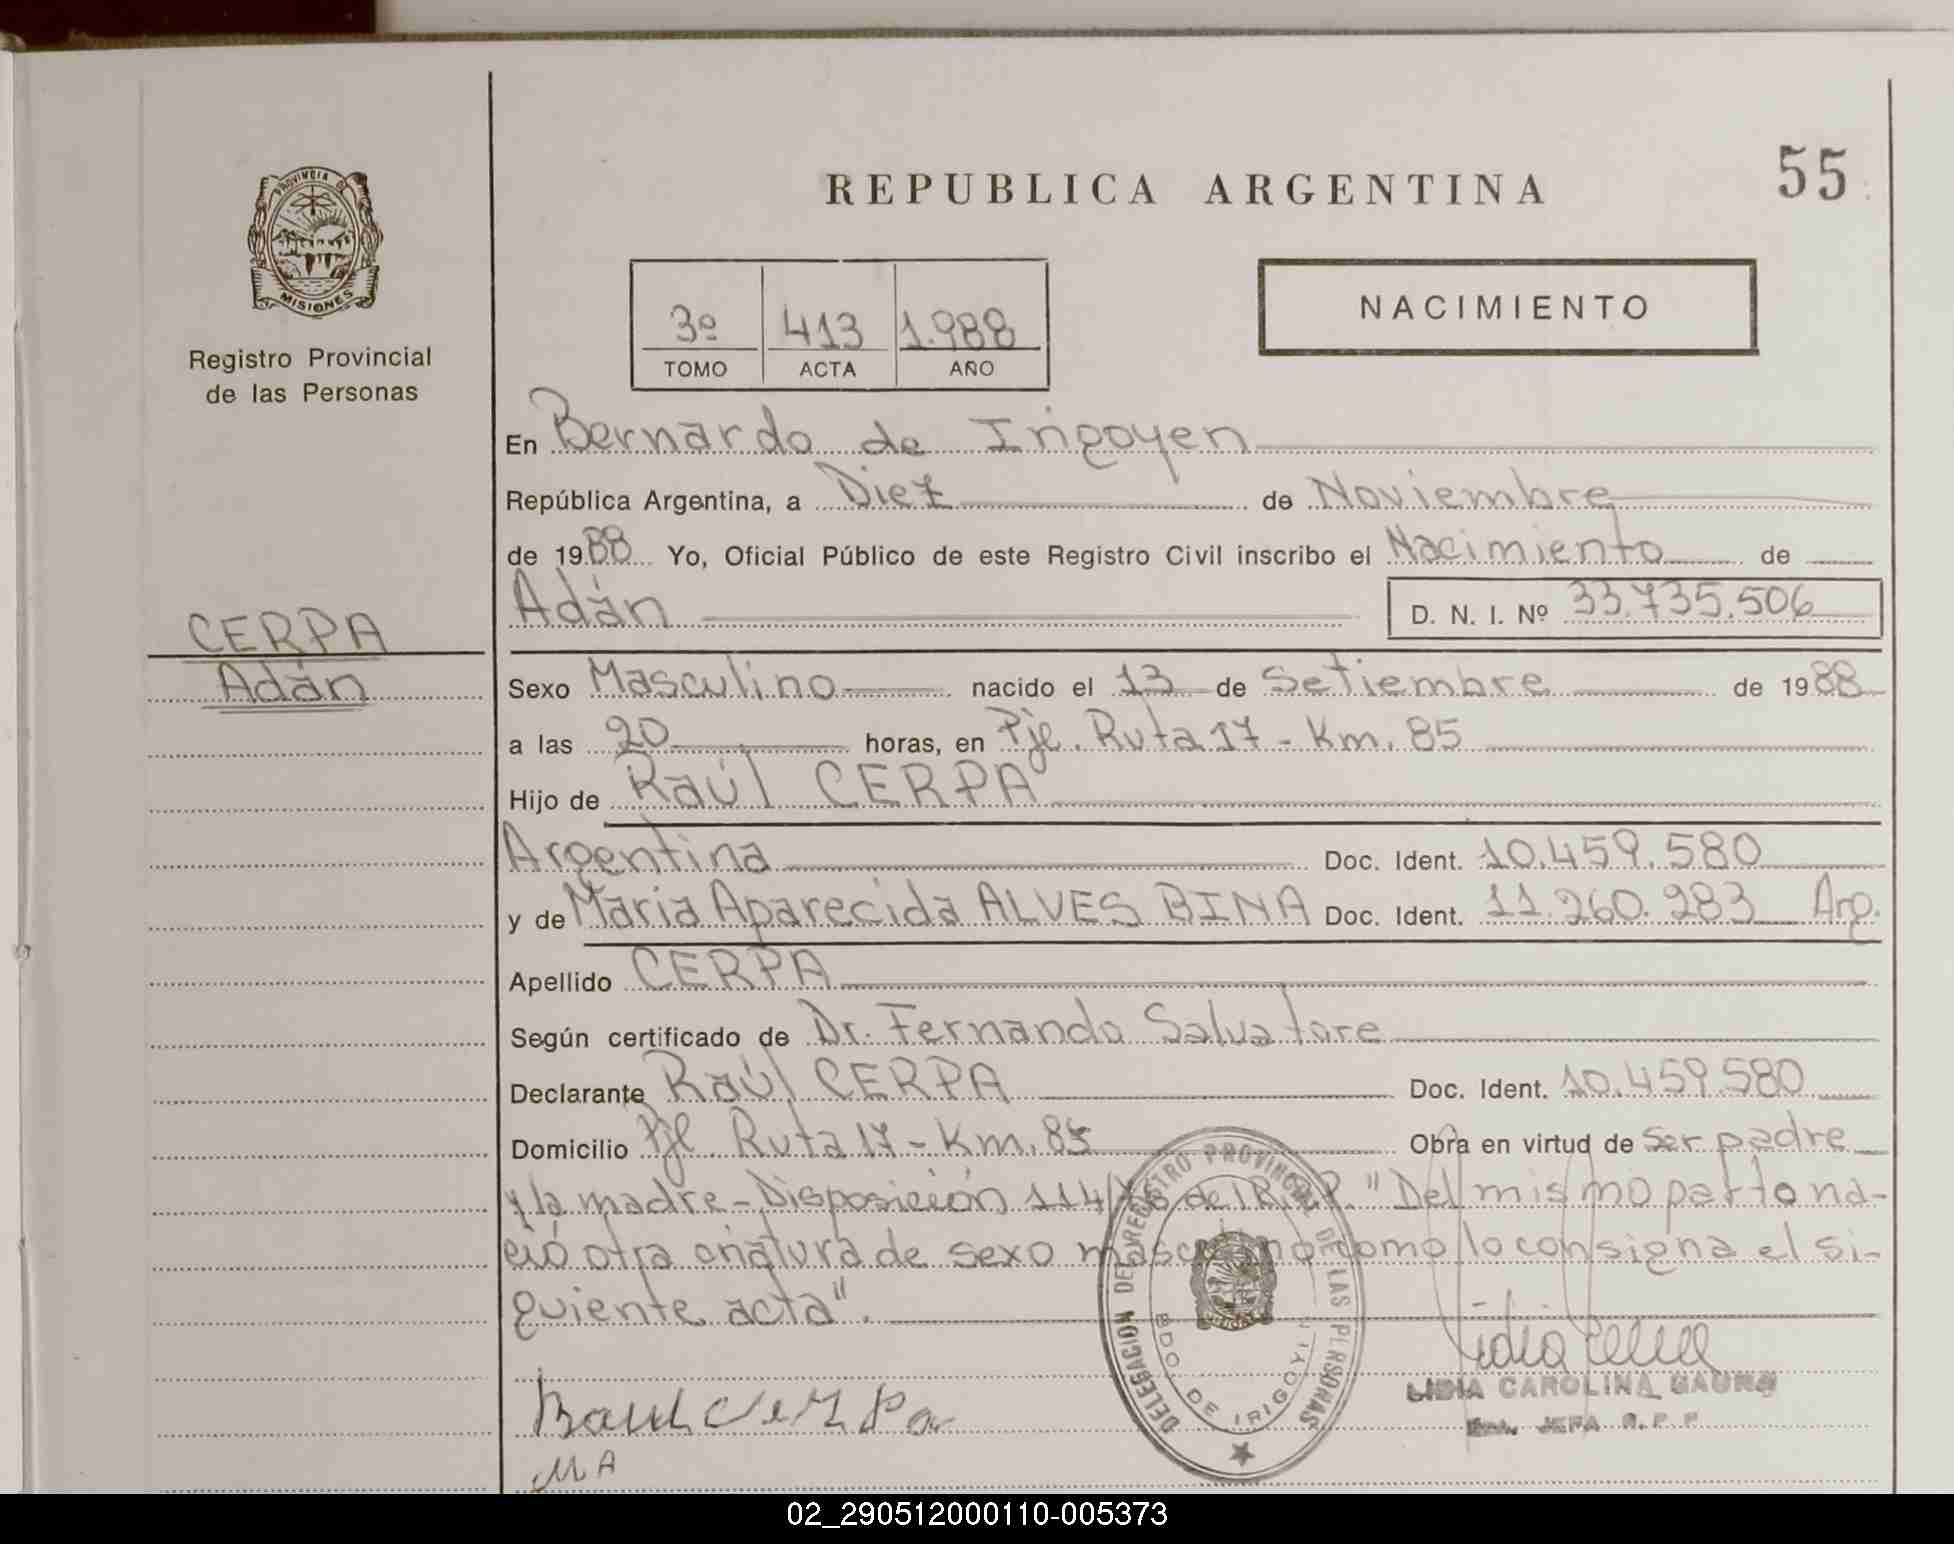 REPUBLICA ARGENTINA
55
PROVINCIA DE
MISIONES
Registro Provincial
de las Personas
3º 413 1.988
TOMO ACTA AÑO
NACIMIENTO
En Bernardo de Irigoyen
República Argentina, a Diez de Noviembre
de 1988 Yo, Oficial Público de este Registro Civil inscribo el Nacimiento de
Adán D. N. I. Nº 33.735.506
CERPA
Adán
Sexo Masculino nacido el 13 de Setiembre de 1988
a las 20 horas, en Pje. Ruta 17 - Km. 85
Hijo de Raúl CERPA
Argentina Doc. Ident. 10.459.580
y de Maria Aparecida ALVES BINA Doc. Ident. 11.260.283 Arg.
Apellido CERPA
Según certificado de Dr. Fernando Salvatore
Declarante Raúl CERPA Doc. Ident. 10.459.580
Domicilio Pje. Ruta 17 - Km. 85 Obra en virtud de ser padre
y la madre - Disposición 114/ del R. P. "Del mismo parto na-
ció otra criatura de sexo masculino como lo consigna el si-
guiente acta".
DELEGACION DEL REGISTRO PROVINCIAL DE LAS PERSONAS
BDO DE IRIGOYEN
LIDIA CAROLINA
JEFA R. P. P.
Raul Cerpa
MA
02_290512000110-005373